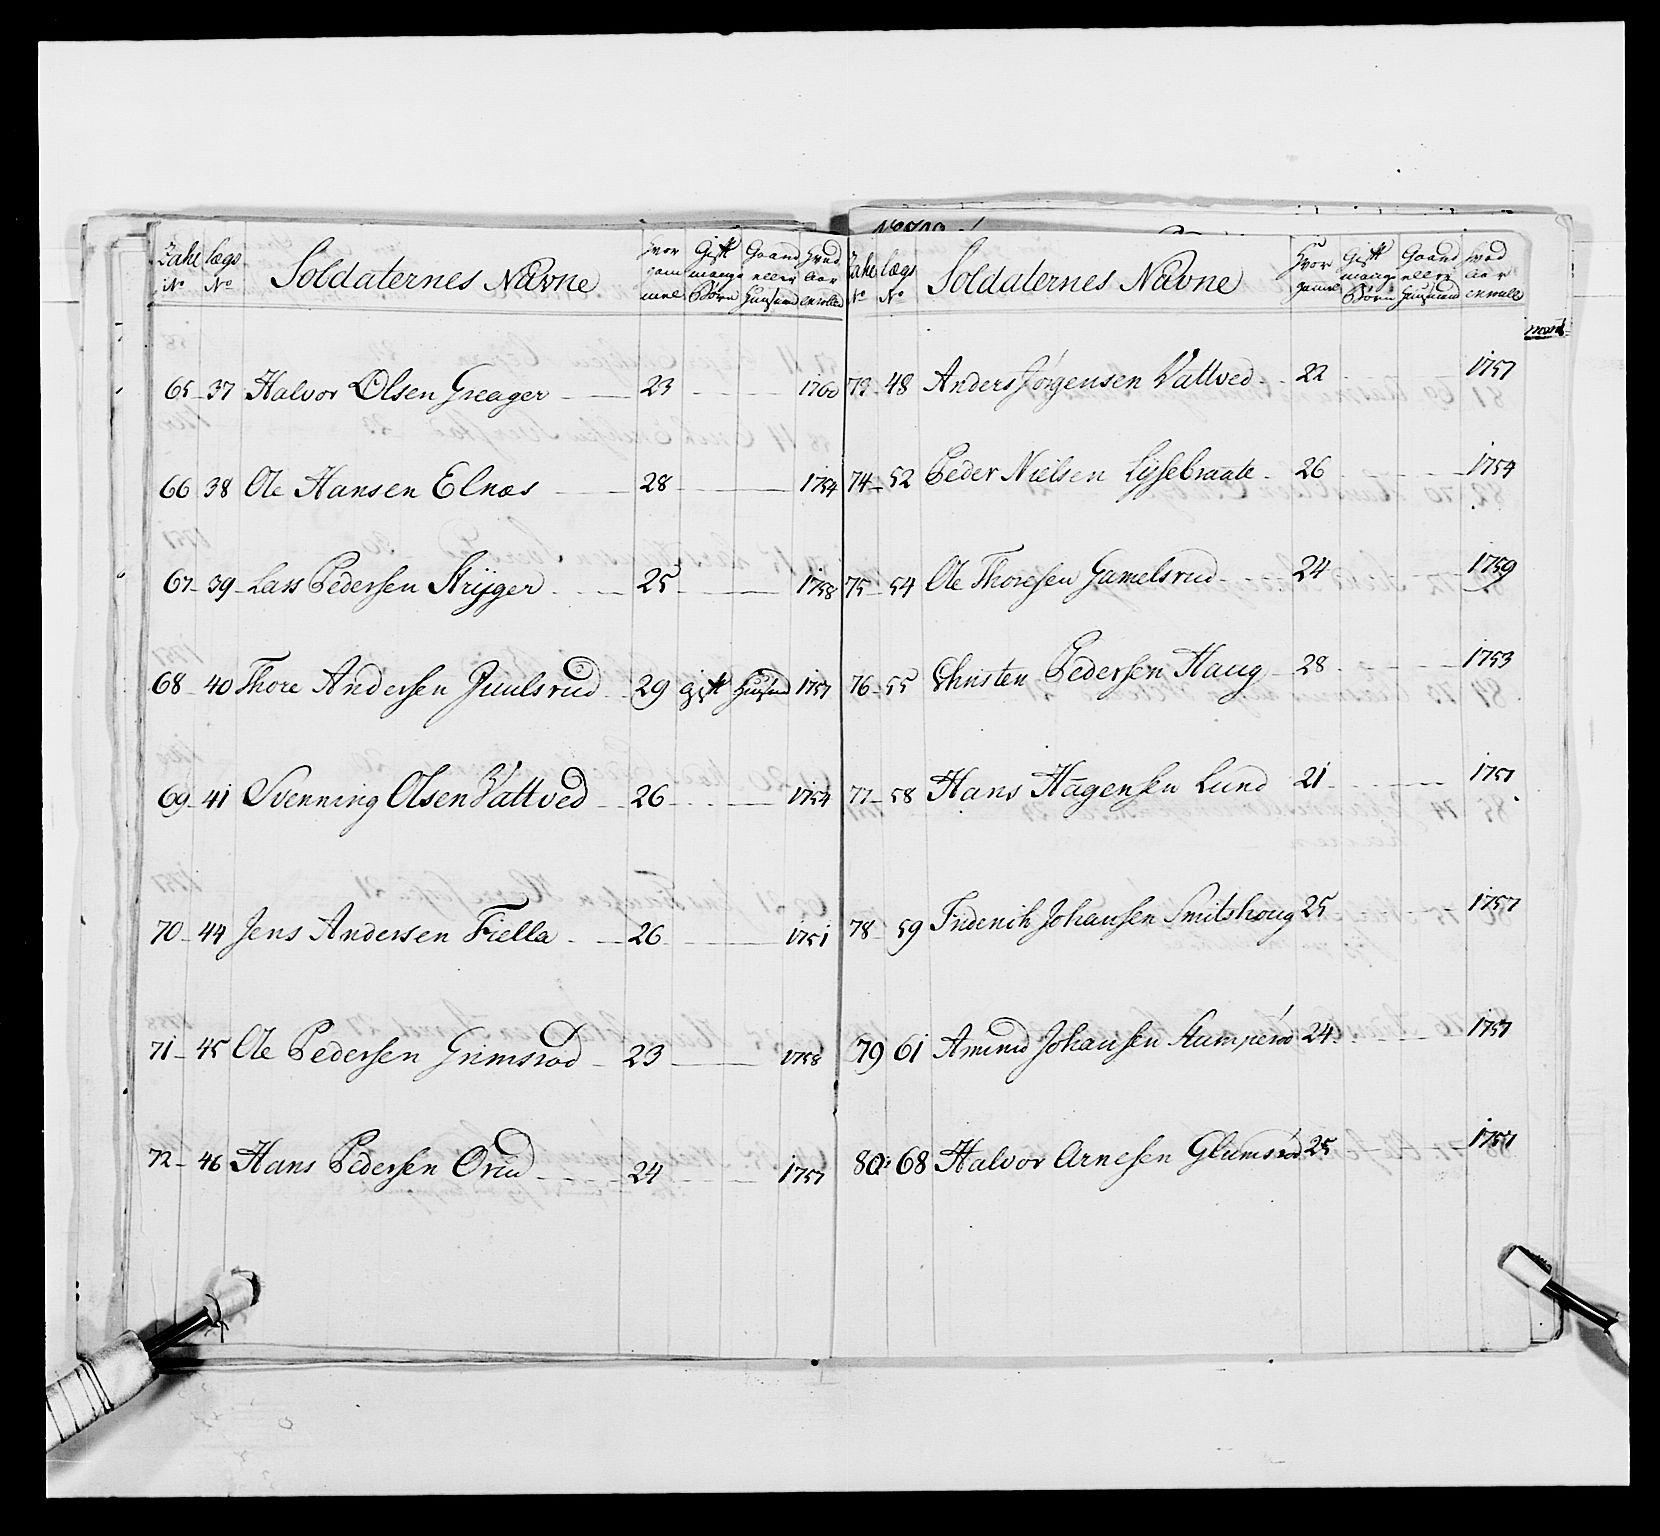 Zahl N° lægs N° Soldaternes Navne Hvor gammel Gift mange Børn Gaard eller Huusmand Hvad Aar enrolled
65 - 37 Halvor Olsen Greager 23 1760
66 38 Ole Hansen Elnæs 28 1754
67 - 39 - Lars Pedersen Stryger 25 1758
68 - 40 Thore Andersen Juulsrud 29 gift Huusmd 1757
69 - 41 Svenning Olsen Vattved 26 1754
70 - 44 Jens Andersen Fiella 26 1751
71 - 45 Ole Pedersen Grimsrød 23 1758
72 - 46 Hans Pedersen Orud 24 1757
Zahl N° lægs N° Soldaternes Navne Hvor gamel Gift mange Børn Gaard eller Huusmand Hvad Aar enrolle
73 - 48 Anders Jørgensen Vattved 22 1757
74 - 52 Peder Nielsen Lyssebraate 26 1754
75 - 54 Ole Thoresen Gamelsrud 24 1759
76 - 55 Christen Pedersen Haug 28 1753
77 - 58 Hans Hagensen Lund 21 1757
78 59 Friderich Johansen Smitshoug 25 1757
79 61 Amund Johansen 24 1757
80 68 Halvor Arnesen Glumsrød 25 1757